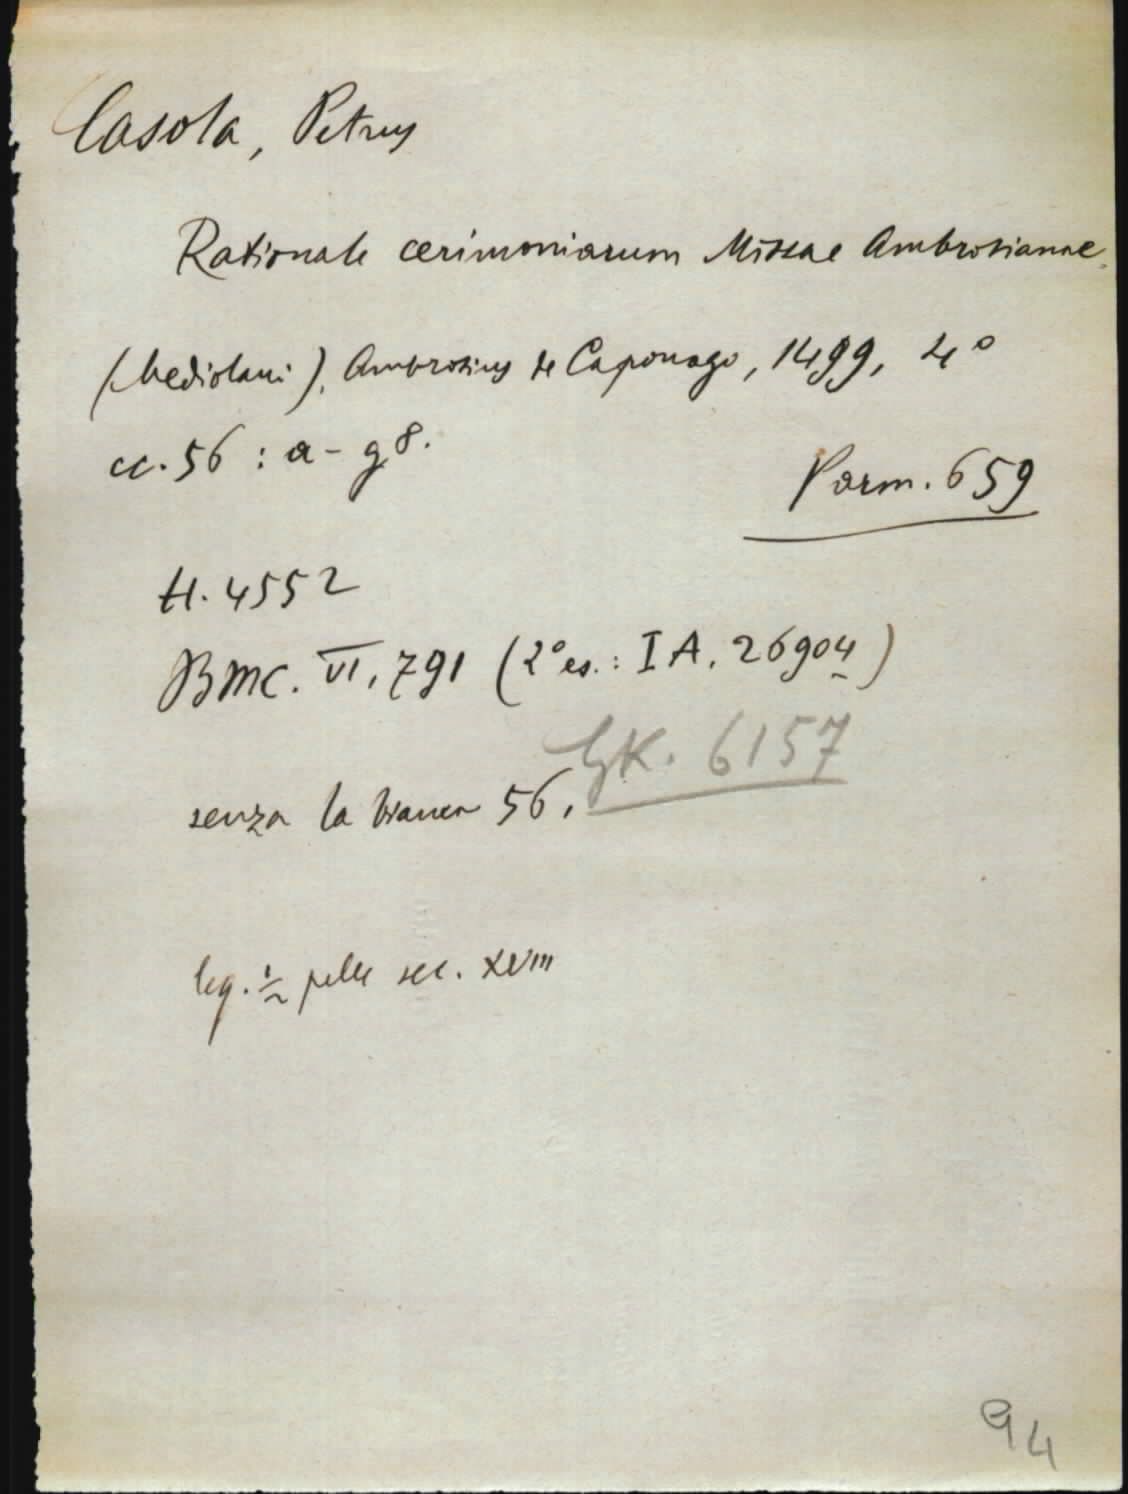 Casola, Petrus
Rationale cerimoniarum Missae Ambrosianae.
(Mediolani), Ambrosius de Caponago, 1499, 4°
cc. 56 : a - g 8.
Parm. 659
H. 4552
BMC. VI, 791 (2° es.: IA. 26904)
GK. 6157
senza la bianca 56,
leg. ½ pelle sec. XVIII
94